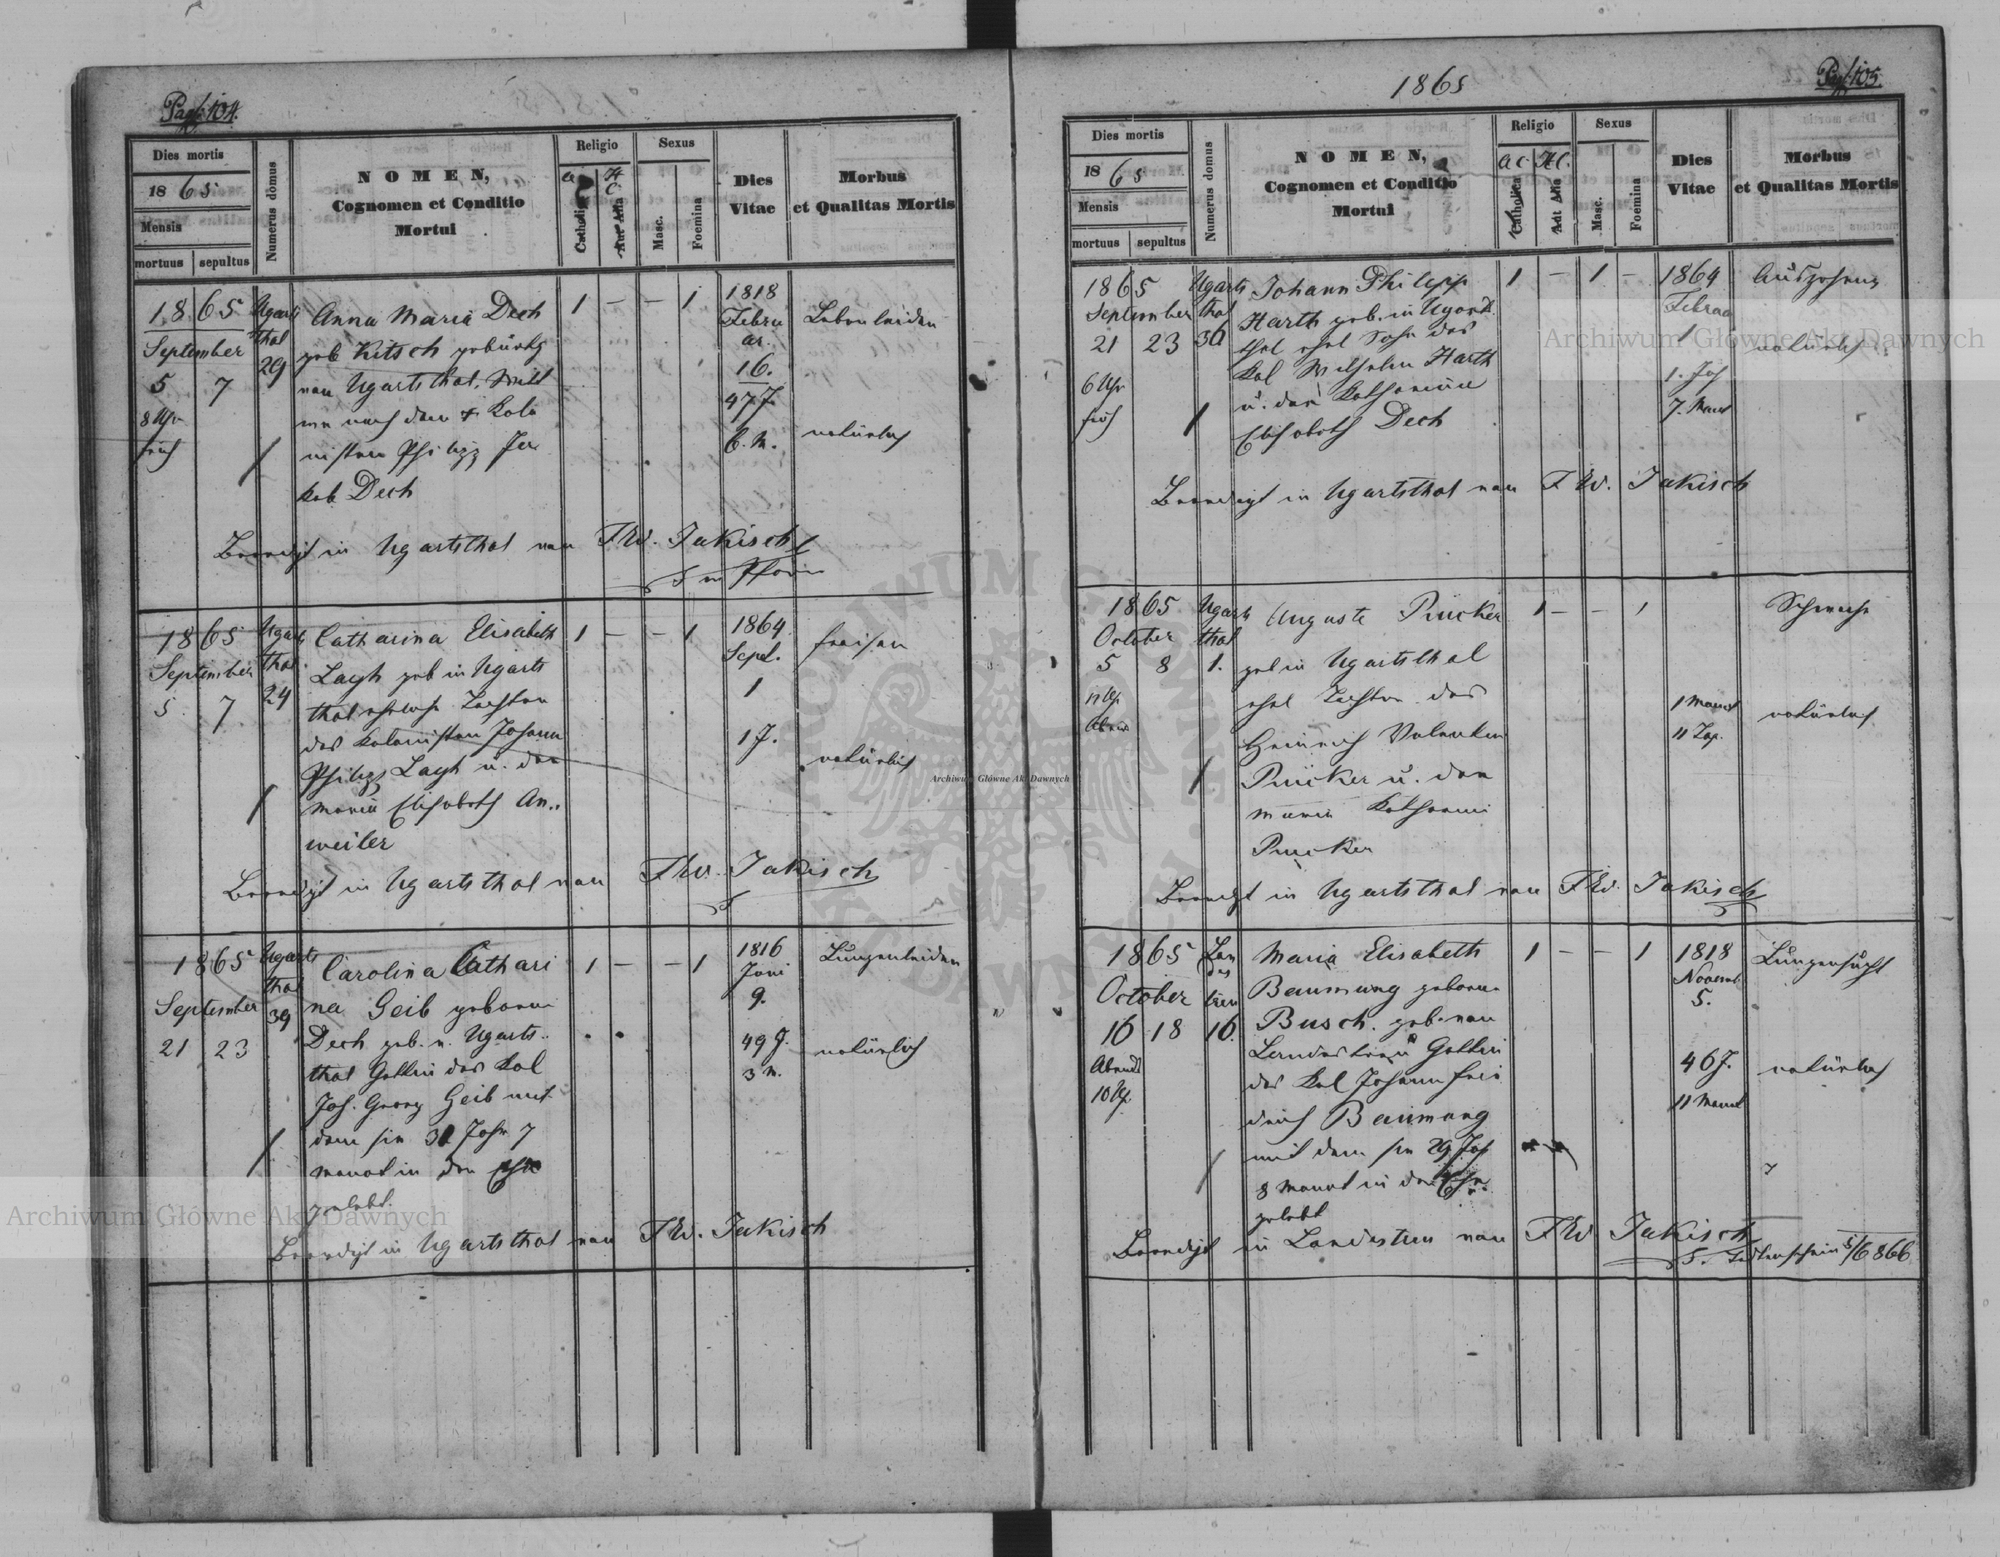 Pag. 104.
Dies mortis
1865
Mensis
mortuus
sepultus
Numerus domus
NOMEN,
Cognomen et Conditio
Mortui
Religio
A. C.
H. C.
Catholica
Aut Alia
Sexus
Masc.
Foemina
Dies
Vitae
Morbus
et Qualitas Mortis
1865
September
5 7
8 Uhr
früh
Ugarts
thal
29
Anna Maria Dech
geb Kitsch gebürtig
von Ugartsthal. Witt
we nach dem + Kolo
nisten Philipp Ja
kob Dech
1 – – 1
1818
Febru
ar.
16.
47 J.
6. M.
Leberleiden
natürlich
Beerdigt in Ugartsthal von Fr W. Jakisch
1865
September
5 7
Ugarts
thal
24
Catharina Elisabeth
Lagh geb in Ugarts
thal eheliche Tochter
des Kolonisten Johann
Philipp Lagh u. der
Maria Elisabeth An..
weiler
1 – – 1
1864
Sept.
1
1 J.
Fraisen
natürlich
Beerdigt in Ugartsthal von Fr W. Jakisch
1865
September
21 23
Ugarts
thal
39
Carolina Cathari
na Geib geborne
Dech geb. v. Ugarts..
thal Gattin des Kol
Joh. Georg Geib mit
dem sie 31 Jahr 7
Monat in der Ehe
gelebt.
1 – – 1
1816
Juni
9.
49 J.
3 M.
Lungenleiden
natürlich
Beerdigt in Ugartsthal von Fr W. Jakisch
1865
Pag. 105.
Dies mortis
1865
Mensis
mortuus
sepultus
Numerus domus
NOMEN,
Cognomen et Conditio
Mortui
Religio
A. C.
H. C.
Catholica
Aut Alia
Sexus
Masc.
Foemina
Dies
Vitae
Morbus
et Qualitas Mortis
1865
September
21 23
6 Uhr
früh
Ugarts
thal
36
Johann Philipp
Harth geb. in Ugarts
thal ehel Sohn des
Kol Wilhelm Harth
u. der Katharina
Elisabeth Dech
1 – 1 –
1864
Februar
1
1. Jah
7. Monat
Auszehrung
natürlich
Beerdigt in Ugartsthal von Fr W. Jakisch
1865
October
5 8
Abends
Ugarts
thal
1.
Auguste Pücker
geb in Ugartsthal
ehel Tochter des
Heinrich Valentin
Pücker u. der
Maria Katharina
Pücker
1 – – 1
1 Monat
11 Tag.
Schwäche
natürlich
Beerdigt in Ugartsthal von Fr W. Jakisch
1865
October
16 18
Abends
10 Uh.
Lan
des
treu
16.
Maria Elisabeth
Baumung geborne
Busch. geb. von
Landestreu Gattin
des Kol Johann Frie
drich Baumung
mit dem sie 29 Jah
8 Monat in der Ehe
gelebt
1 – – 1
1818
Novemb.
5.
46 J.
11 Monat
Lungensucht
natürlich
Beerdigt in Landestreu von Fr W Jakisch
Archiwum Główne Akt Dawnych
Archiwum Główne Akt Dawnych
Archiwum Główne Akt Dawnych